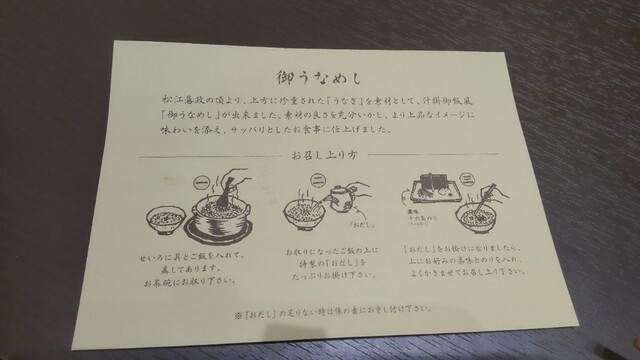 御うなめし
松江藩政の頃より、上方に珍重された「うなぎ」を素材として、汁掛御飯風
「御うなめし」が出来ました。素材の良さを充分いかし、より上品なイメージに
味わいを添え、サッパリとしたお食事に仕上げました。
お召し上り方
一
せいろに具とご飯を入れて、
蒸してあります。
お茶碗にお取り下さい。
二
「おだし」
お取りになったご飯の上に
特製の「おだし」を
たっぷりお掛け下さい。
三
薬味
「おだし」をお掛けになりましたら、
上にお好みの薬味とのりを入れ、
よくかきまぜてお召し上り下さい。
※「おだし」の足りない時は係の者にお申し付け下さい。